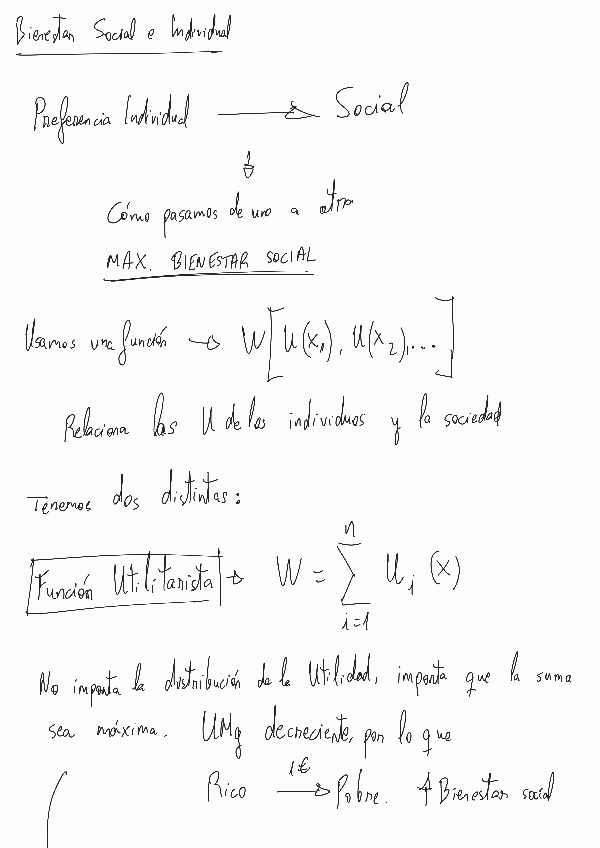 Bienestar Social e Individual
Preferencia Individual → Social
↓
Cómo pasamos de uno a otro
MAX. BIENESTAR SOCIAL
Usamos una función → W[U(x₁), U(x₂),...]
Relaciona las U de los individuos y la sociedad
Tenemos dos distintas:
Función Utilitarista → W = ∑ᵢ₌₁ⁿ Uᵢ (x)
No importa la distribución de la Utilidad, importa que la suma
sea máxima. UMg decreciente, por lo que
Rico 1€ → Pobre. ↑ Bienestar social